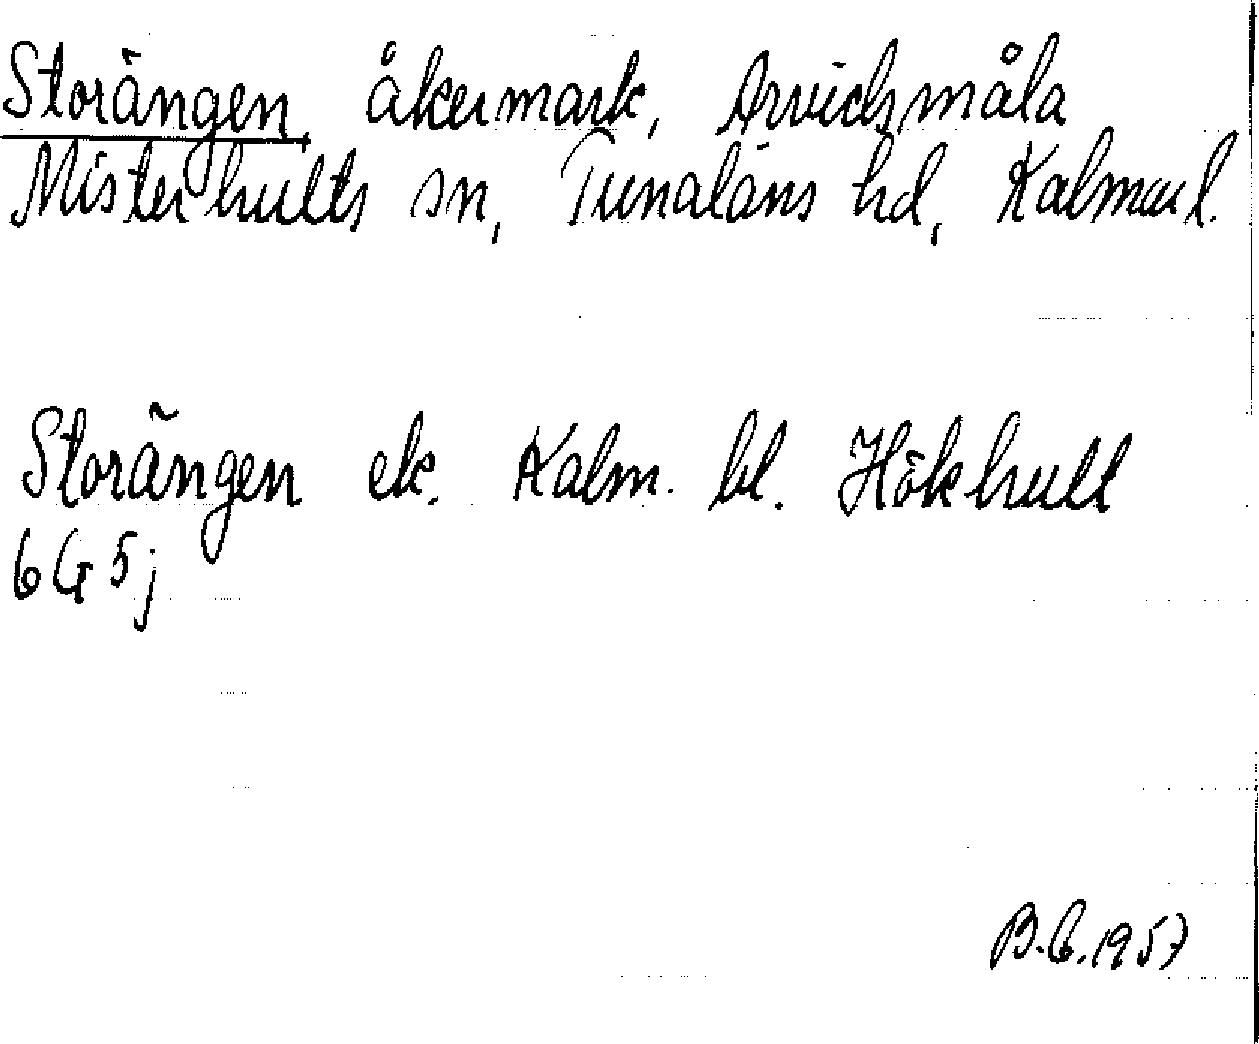 Storängen, åkermark, Arvidsmåla
Misterhults sn, Tunaläns hd, Kalmar l.
Storängen ek. Kalm. bl. Hökhult
6G5j
B.G. 1957